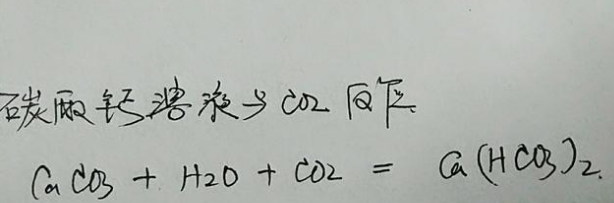 碳酸钙溶液与CO2反应
CaCO3 + H2O + CO2 = Ca(HCO3)2.